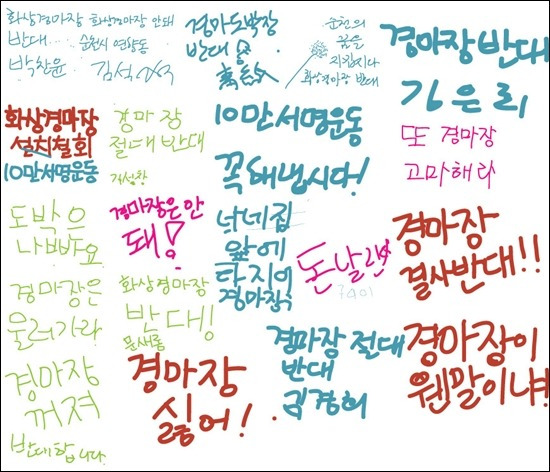 화상경마장
반대...
박찬윤
화상경마장 안돼
순천시 연향동
김석
경마도박장
반대
순천의
꿈을
지킵시다
화상경마장 반대
경마장 반대
김은희
화상경마장
설치철회
10만서명운동
경마장
절대반대
10만서명운동
꼭해냅시다!
또 경마장
고마해라
도박은
나빠요
경마장은안
돼!
너네집
앞에
다지어
경마장
돈날려
경마장
결사반대!!
경마장은
물러가라
화상경마장
반대!
문새롬
경마장
꺼져
반대합니다.
경마장
싫어!
경마장 절대
반대
김경허
경마장이
웬말이냐!